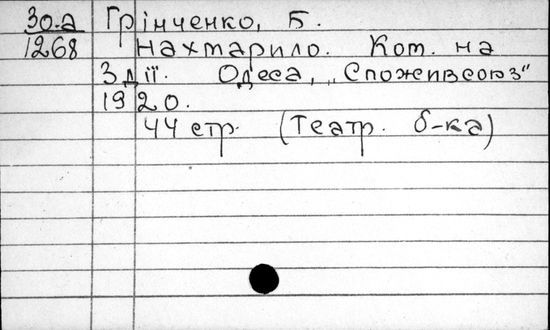 Зо.а Грінченко, Б.
1268 Нахтарило. Ком. на
3 дії. Одеса, „Споживсоюз"
1920.
44 стр. (Театр. б-ка)